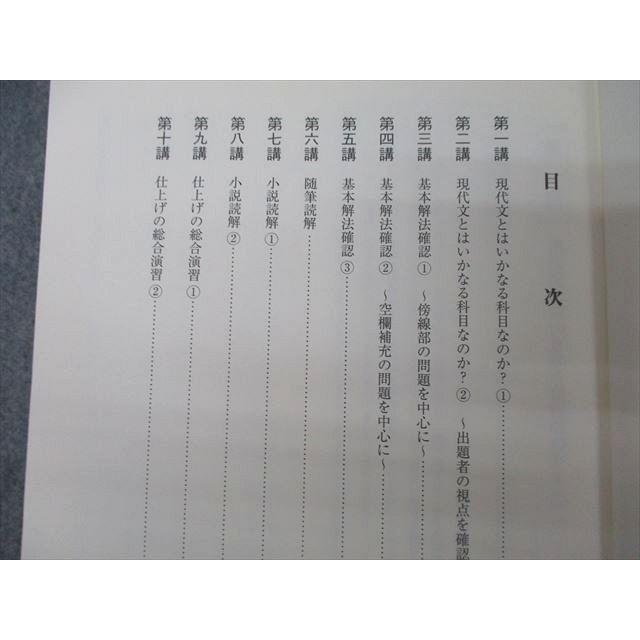 目次
第一講 現代文とはいかなる科目なのか？①
第二講 現代文とはいかなる科目なのか？② ～出題者の視点を確認
第三講 基本解法確認① ～傍線部の問題を中心に～
第四講 基本解法確認② ～空欄補充の問題を中心に～
第五講 基本解法確認③
第六講 随筆読解
第七講 小説読解①
第八講 小説読解②
第九講 仕上げの総合演習①
第十講 仕上げの総合演習②